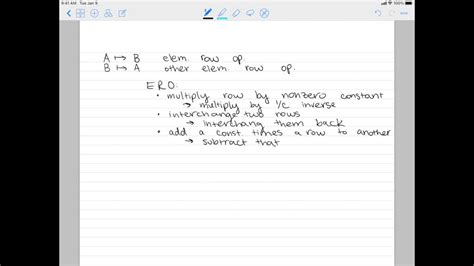 9:41 AM Tue Jan 9
A ↦ B elem. row op.
B ↦ A other elem. row op.
ERO:
• multiply row by nonzero constant
→ multiply by 1/c inverse
• interchange two rows
→ interchang them back
• add a const. times a row to another
→ subtract that